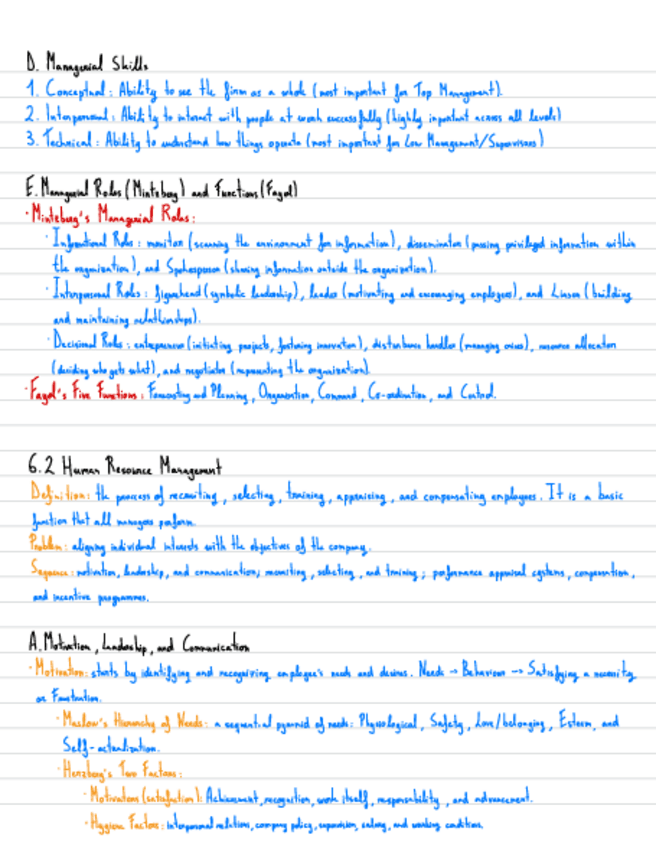 D. Managerial Skills
1. Conceptual: Ability to see the firm as a whole (most important for Top Management).
2. Interpersonal: Ability to interact with people at work successfully (highly important across all levels)
3. Technical: Ability to understand how things operate (most important for Low Management/Supervisors)
E. Managerial Roles (Mintzberg) and Functions (Fayol)
· Mintzberg's Managerial Roles:
· Informational Roles: monitor (scanning the environment for information), disseminator (passing privileged information within
the organisation), and Spokesperson (sharing information outside the organisation).
· Interpersonal Roles: figurehead (symbolic leadership), leader (motivating and encouraging employees), and Liaison (building
and maintaining relationships).
· Decisional Roles: entrepreneur (initiating projects, fostering innovation), disturbance handler (managing crises), resource allocator
(deciding who gets what), and negotiator (representing the organisation).
· Fayol's Five Functions: Forecasting and Planning, Organisation, Command, Co-ordination, and Control.
6.2 Human Resource Management
Definition: the process of recruiting, selecting, training, appraising, and compensating employees. It is a basic
function that all managers perform.
Problem: aligning individual interests with the objectives of the company.
Sequence: motivation, leadership, and communication; recruiting, selecting, and training; performance appraisal systems, compensation,
and incentive programmes.
A. Motivation, Leadership, and Communication
· Motivation: starts by identifying and recognising employee's needs and desires. Needs → Behaviour → Satisfying a necessity
or Frustration.
· Maslow's Hierarchy of Needs: a sequential pyramid of needs: Physiological, Safety, Love/belonging, Esteem, and
Self-actualization.
· Herzberg's Two Factors:
· Motivators (satisfaction): Achievement, recognition, work itself, responsibility, and advancement.
· Hygiene Factors: interpersonal relations, company policy, supervision, salary, and working conditions.